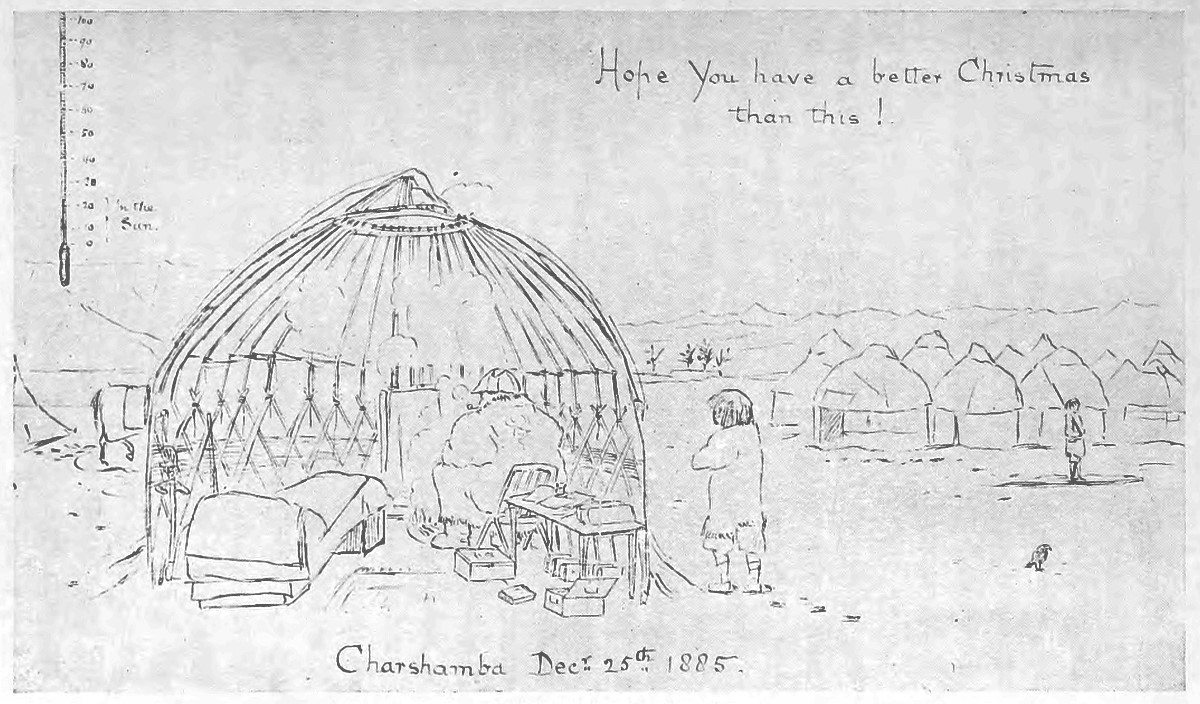 100
90
80
70
60
50
40
30
20
10
0
In the
Sun.
Hope You have a better Christmas
than this !
Charshamba Decr. 25th 1885.